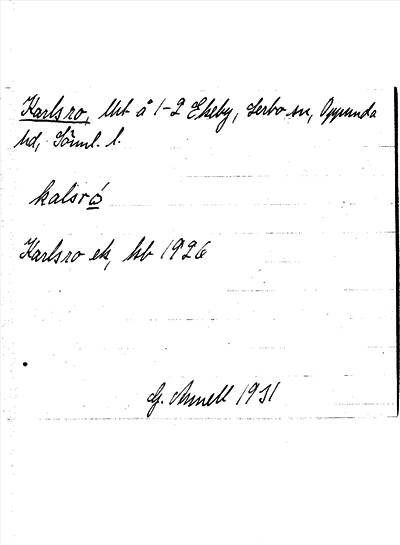 Karlsro, lht å 1-2 Ekeby, Lerbo sn, Oppunda
hd, Söml. l.
kalsró
Karlsro ek, hb 1926
G. Arnell 1931